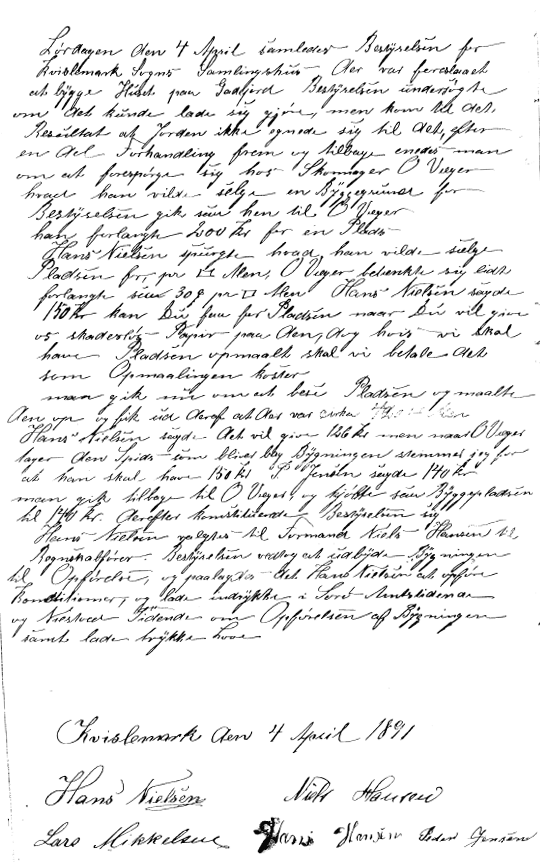 Lørdagen den 4 April samledes Bestyrelsen for
Kvislemark Sogns Samlingshus Der var foreslaaet
at bygge Huset paa Gadejord Bestyrelsen undersøgte
om det kunde lade sig gjøre, men kom til det
Resultat at Jorden ikke egnede sig til det, efter
en del Forhandling frem og tilbage enedes man
om at forespørge sig hos Skomager O Veger
hvad han vilde sælge en Byggegrund for
Bestyrelsen gik saa hen til O Veger
han forlangte 200 Kr for en Plads
Hans Nielsen spurgte hvad han vilde sælge
Pladsen for pr □ Alen, O Veger betenkte sig lidt
forlangte saa 30 ø pr □ Alen Hans Nielsen sagde
150 Kr kan Du faa for Pladsen naar Du vil give
os skadesløs Papir paa den, dog hvis vi skal
have Pladsen opmaalt skal vi betale det
som Opmaalingen koster
man gik nu om at bese Pladsen og maalte
den op og fik ud deraf at der var cirka
Hans Nielsen sagde det vil give 126 Kr men naar O Veger
tager den Spids som bliver Bygningen stemmer jeg for
at han skal have 150 Kr P Jensen sagde 140 Kr
man gik tilbage til O Veger og kjøbte saa Byggepladsen
til 140 Kr. derefter konstituerede Bestyrelsen sig
Hans Nielsen valgtes til Formand Niels Hansen til
Regnskabsfører. Bestyrelsen vedtog at udbyde Bygningen
til Opførelse, og paalagdes det Hans Nielsen at opføre
Konditioner, og lade indrykke i Sorø Amtstidende
og Nestved Tidende om Opførelsen af Bygningen
samt lade trykke Love
Kvislemark den 4 April 1891
Hans Nielsen Niels Hansen
Lars Mikkelsen Hans Hansen Peder Jensen